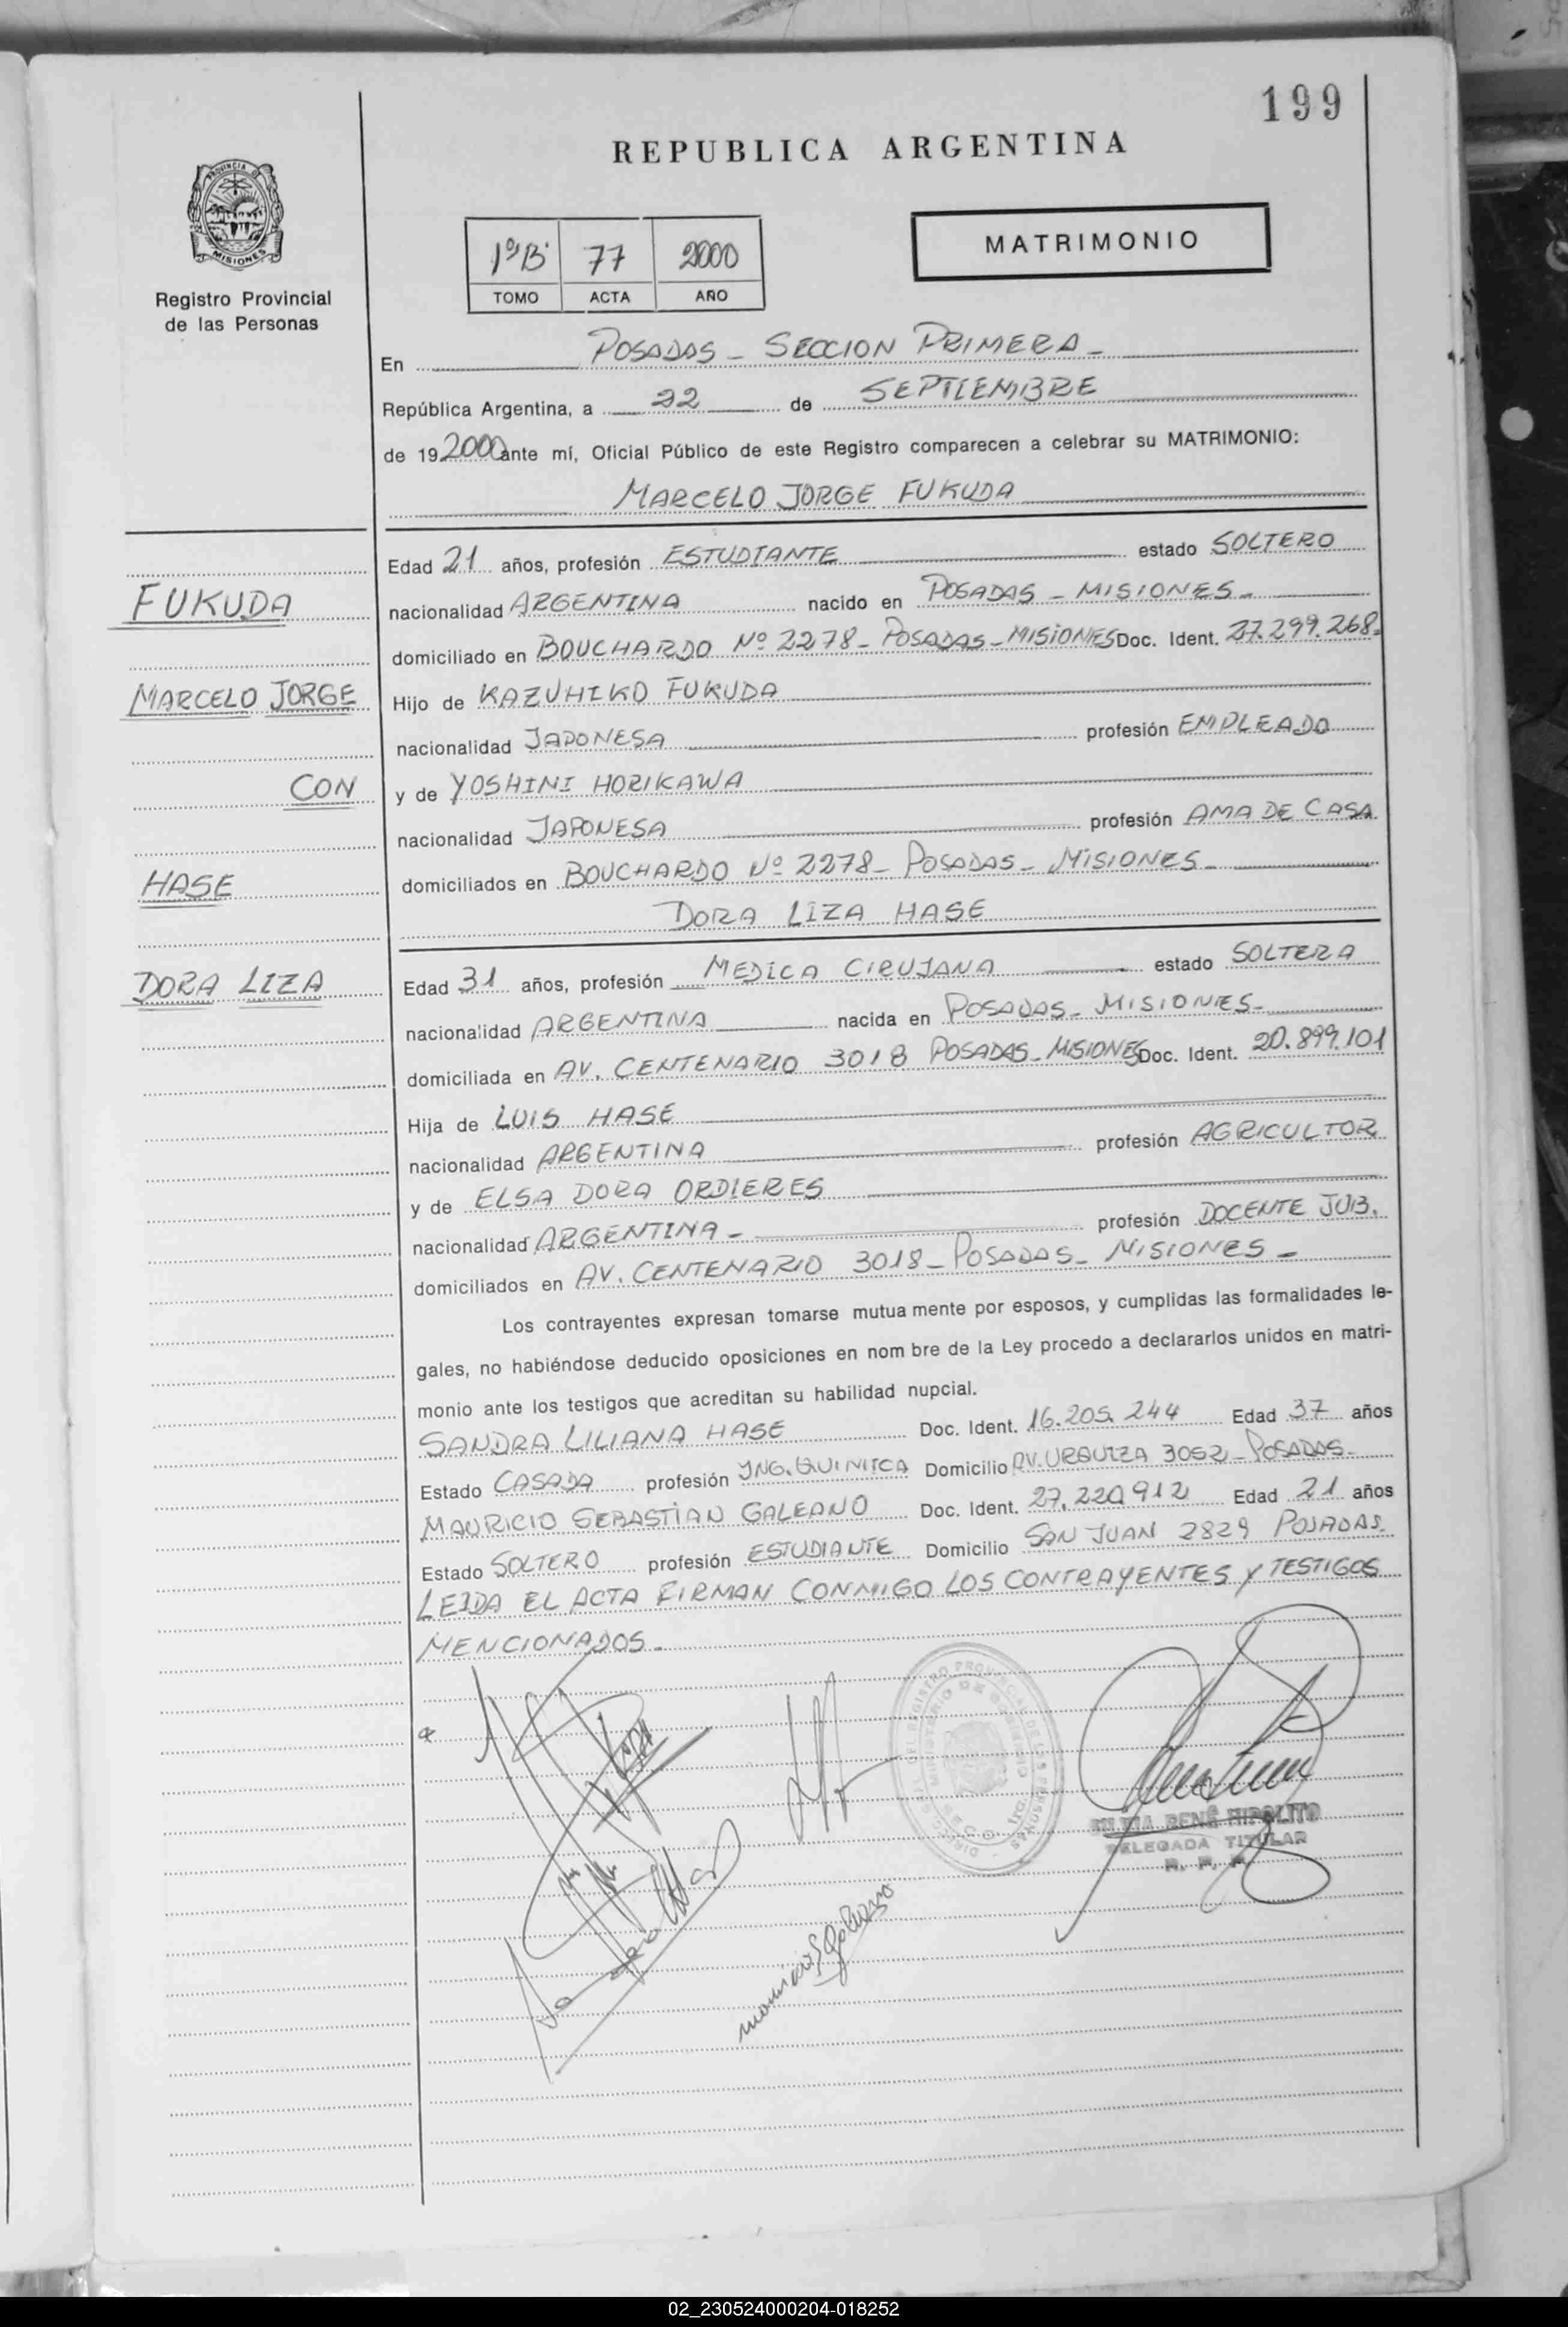 199
REPUBLICA ARGENTINA
PROVINCIA DE
MISIONES
Registro Provincial
de las Personas
1º B 77 2000
TOMO ACTA AÑO
MATRIMONIO
En POSADAS - SECCION PRIMERA -
República Argentina, a 22 de SEPTIEMBRE
de 19 2000 ante mí, Oficial Público de este Registro comparecen a celebrar su MATRIMONIO:
MARCELO JORGE FUKUDA
FUKUDA
MARCELO JORGE
CON
HASE
DORA LIZA
Edad 21 años, profesión ESTUDIANTE estado SOLTERO
nacionalidad ARGENTINA nacido en POSADAS - MISIONES -
domiciliado en BOUCHARDO Nº 2278 - POSADAS - MISIONES Doc. Ident. 27.299.268 -
Hijo de KAZUHIKO FUKUDA
nacionalidad JAPONESA profesión EMPLEADO
y de YOSHINI HORIKAWA
nacionalidad JAPONESA profesión AMA DE CASA
domiciliados en BOUCHARDO Nº 2278 - POSADAS - MISIONES -
DORA LIZA HASE
Edad 31 años, profesión MEDICA CIRUJANA estado SOLTERA
nacionalidad ARGENTINA nacida en POSADAS - MISIONES -
domiciliada en AV. CENTENARIO 3018 POSADAS - MISIONES Doc. Ident. 20.899.101
Hija de LUIS HASE
nacionalidad ARGENTINA profesión AGRICULTOR
y de ELSA DORA ORDIERES
nacionalidad ARGENTINA - profesión DOCENTE JUB.
domiciliados en AV. CENTENARIO 3018 - POSADAS - MISIONES -
Los contrayentes expresan tomarse mutua mente por esposos, y cumplidas las formalidades le-
gales, no habiéndose deducido oposiciones en nom bre de la Ley procedo a declararlos unidos en matri-
monio ante los testigos que acreditan su habilidad nupcial.
SANDRA LILIANA HASE Doc. Ident. 16.205.244 Edad 37 años
Estado CASADA profesión ING. QUIMICA Domicilio AV. URQUIZA 3052 - POSADAS -
MAURICIO SEBASTIAN GALEANO Doc. Ident. 27.220912 Edad 21 años
Estado SOLTERO profesión ESTUDIANTE Domicilio SAN JUAN 2829 POSADAS.
LEIDA EL ACTA FIRMAN CONMIGO LOS CONTRAYENTES Y TESTIGOS
MENCIONADOS -
RENÉ HIPOLITO
DELEGADA TITULAR
02_230524000204-018252